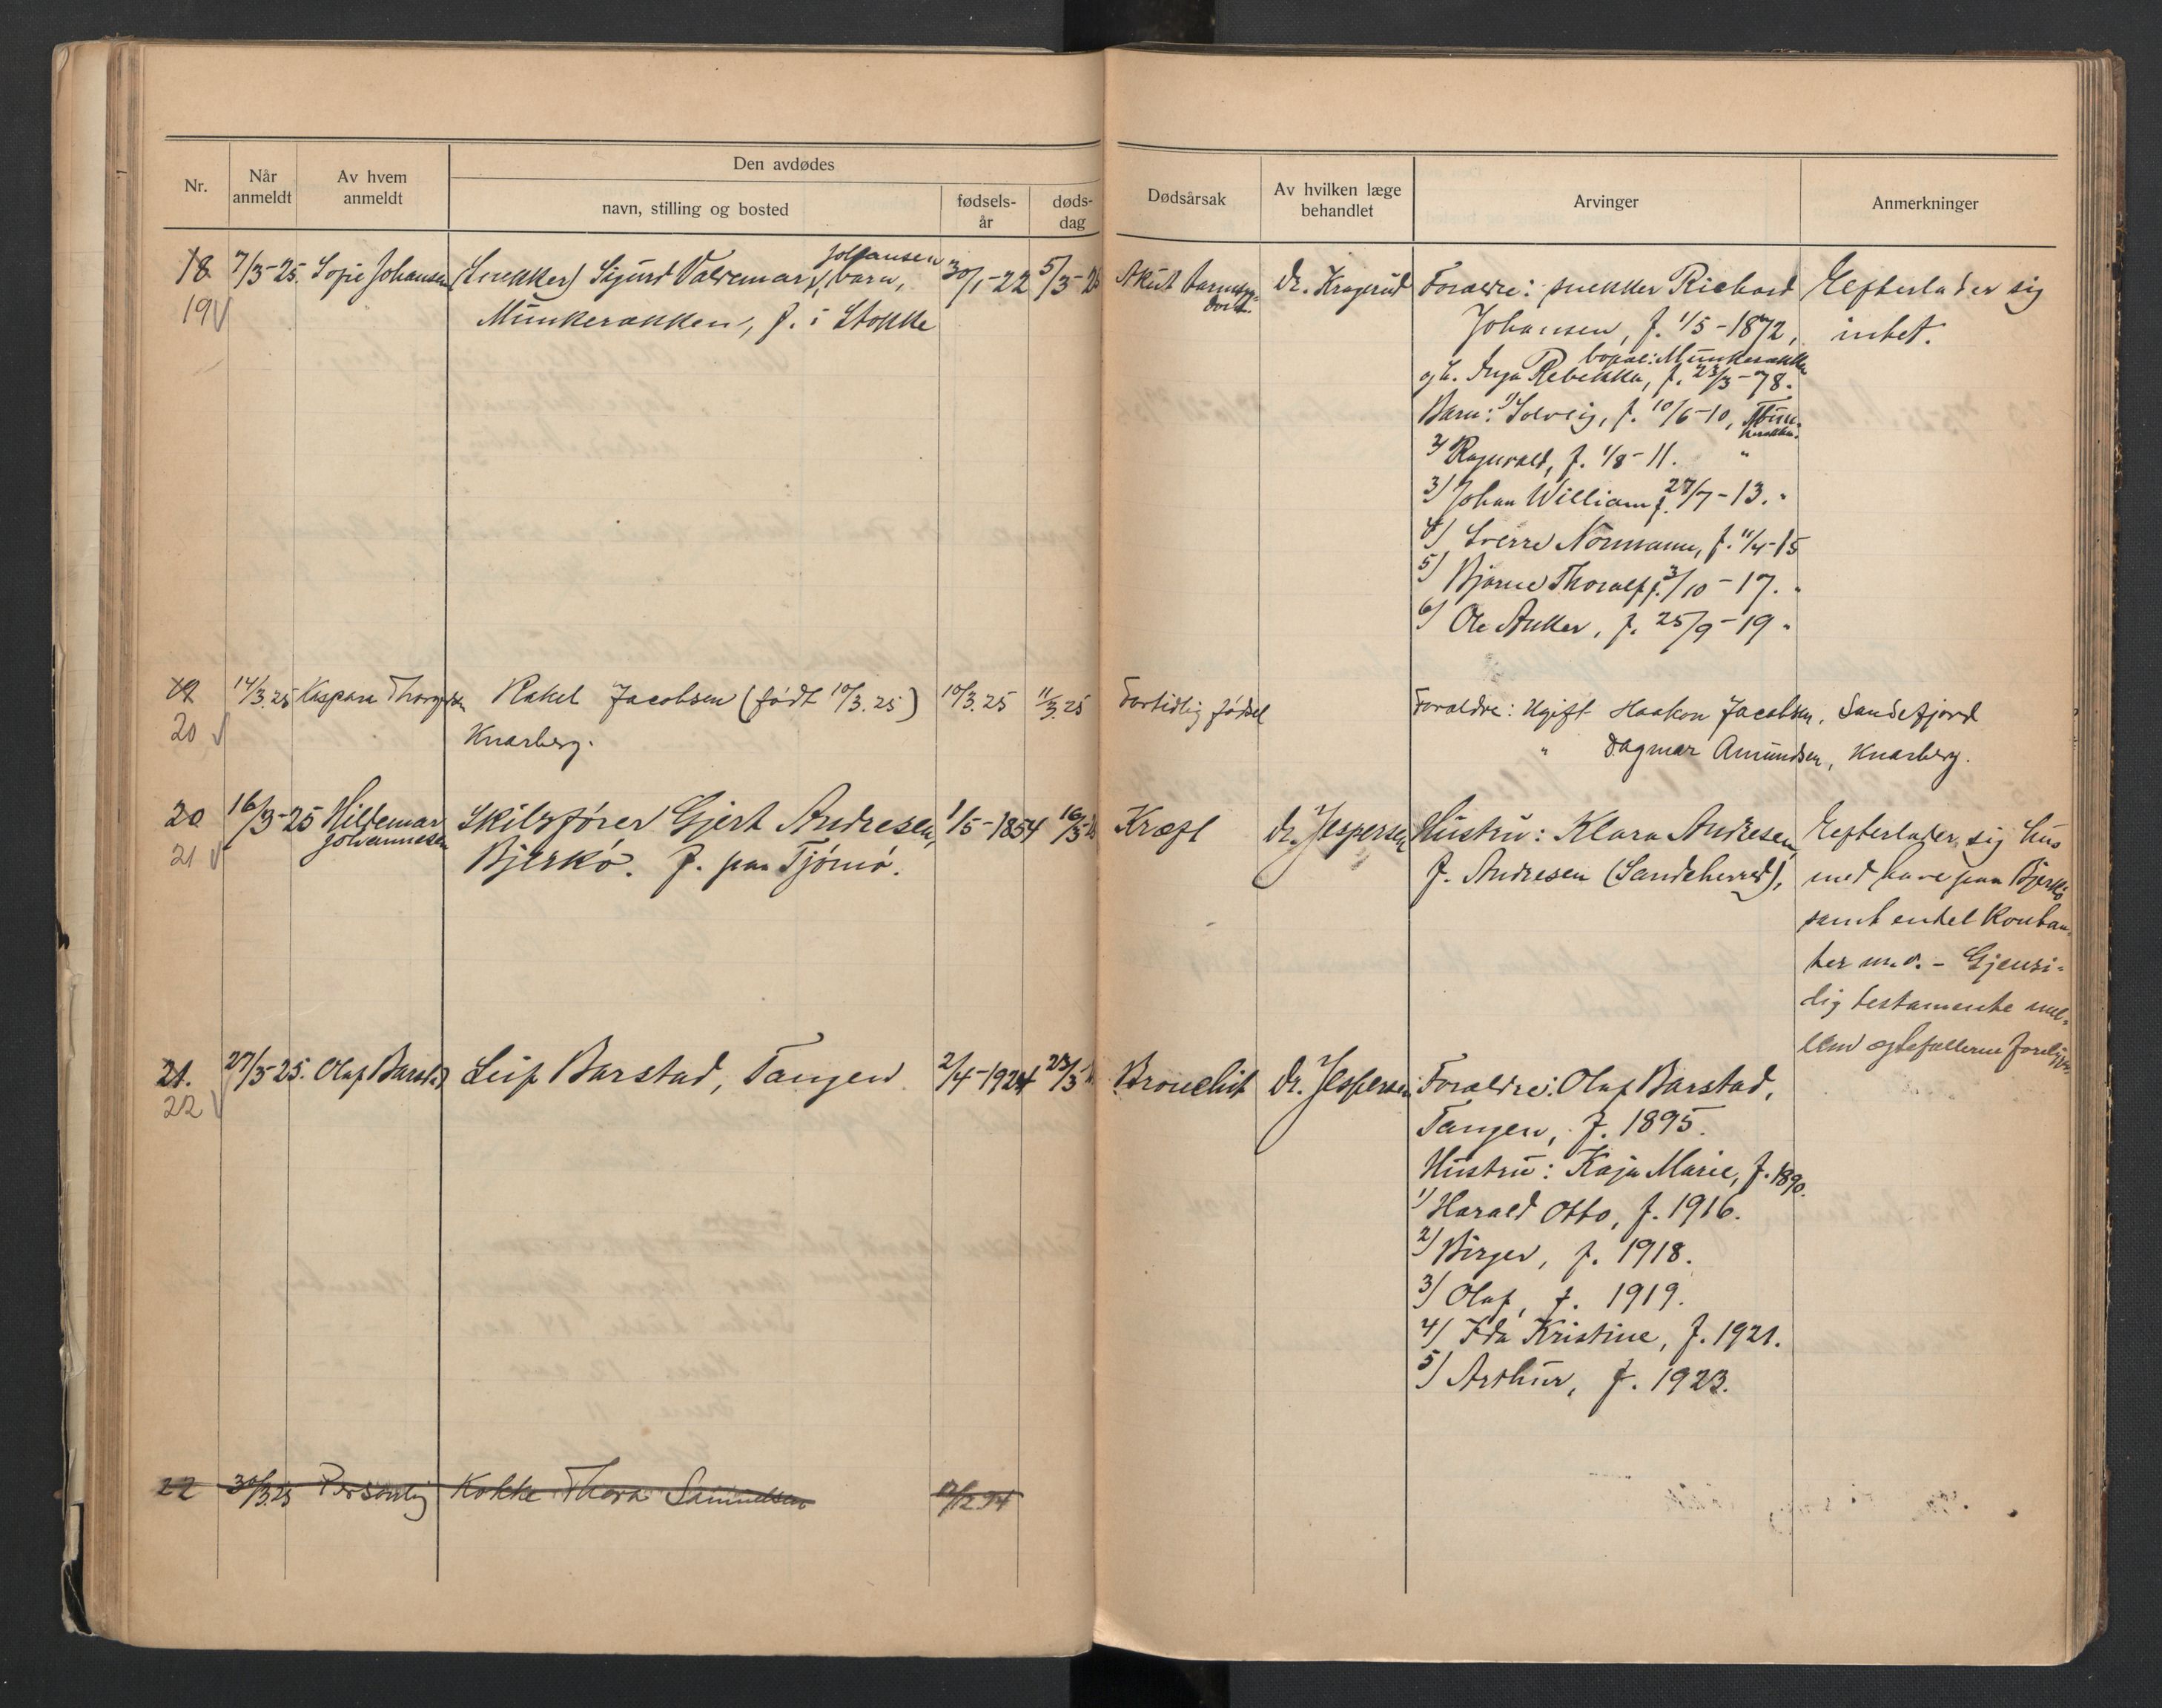 Nr.
Når anmeldt
Av hvem anmeldt
Den avdødes
navn, stilling og bosted
fødsels-år
døds-dag
Dødsårsak
Av hvilken læge behandlet
Arvinger
Anmerkninger
18 7/3-25. Sofie Johansen (Snekker) Sigurd Valdemar Johansen, barn, 30/1-22 5/3-25 Akut Dr. Kragerud Foraldre: snekker Richard Efterlader sig
19 Munkerækken, f. i Stokke Johansen, f. 1/5-1872, intet.
bopæl: Munkerækken
og h. Inga Rebekka, f. 23/3-78.
Barn: 1) Solveig, f. 10/6-10, Munkerækken.
2) Ragnvald, f. 1/8-11. "
3) Johan William f. 27/7-13. "
4) Sverre Normann, f. 11/4-15
5) Bjarne Thoralf f. 3/10-17. "
6) Ole Anker, f. 25/9-19 "
19 14/3.25 Kaspara Rakel Jacobsen (født 10/3.25) 10/3.25 11/3.25 Fortidlig fødsel Foraldre: Ugift Haakon Jacobsen, Sandefjord
20 Knarberg. " Dagmar Amundsen, Knarberg.
20 16/3-25 Hildemar Johannesen Skibsfører Gjert Andresen, 1/5-1854 16/3-25 Kræft Dr. Jespersen Hustru: Klara Andresen, Efterlader sig hus
21 Bjerkø. f. paa Tjømø. f. Andresen (Sandeherred), med have paa Bjerkø
samt endel kontan-
ter m.v. - Gjensi-
dig testamente mel-
lem ægtefællerne foreligger.
21. 27/3-25. Olaf Barstad Leif Barstad, Tangen 2/4-1924 23/3-25 Bronchit Dr. Jespersen Foraldre: Olaf Barstad,
22 Tangen, f. 1895.
Hustru: Kaja Marie, f. 1890.
1) Harald Otto, f. 1916.
2) Birger, f. 1918.
3) Olaf, f. 1919.
4) Ida Kristine, f. 1921.
5) Arthur, f. 1923.
22 30/3.25 Personlig Kokke Thora Samuelsen 12.94